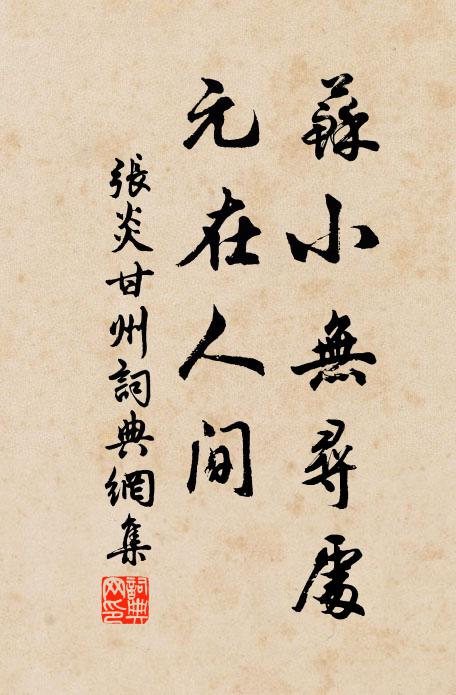 蘇小無尋處
元在人间
張炎甘州詞典網集
詞典網印